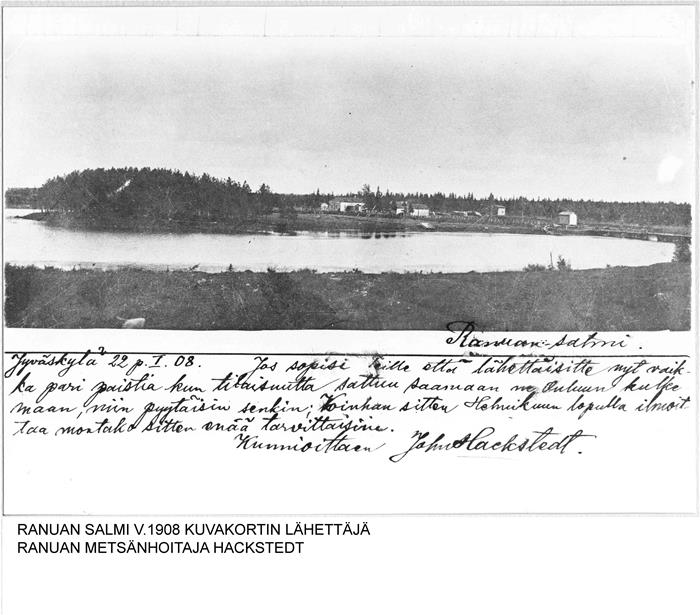 Ranuan salmi.
Jyväskylä 22 p. I. 08. Jos sopisi Teille että lähettäisitte nyt vaik-
ka pari paistia kun tilaisuutta sattuu saamaan ne Ouluun kulke
maan, niin pyytäisin senkin, Voinhan sitten Helmikuun lopulla ilmoit
taa montako sitten enää tarvittaisiin.
Kunnioittaen John Hackstedt.
RANUAN SALMI V.1908 KUVAKORTIN LÄHETTÄJÄ
RANUAN METSÄNHOITAJA HACKSTEDT